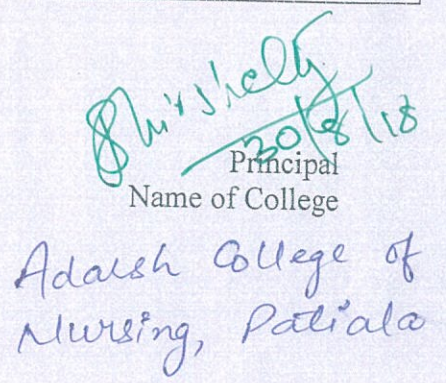 30/8/18
Principal
Name of College
Adarsh College of
Nursing, Patiala